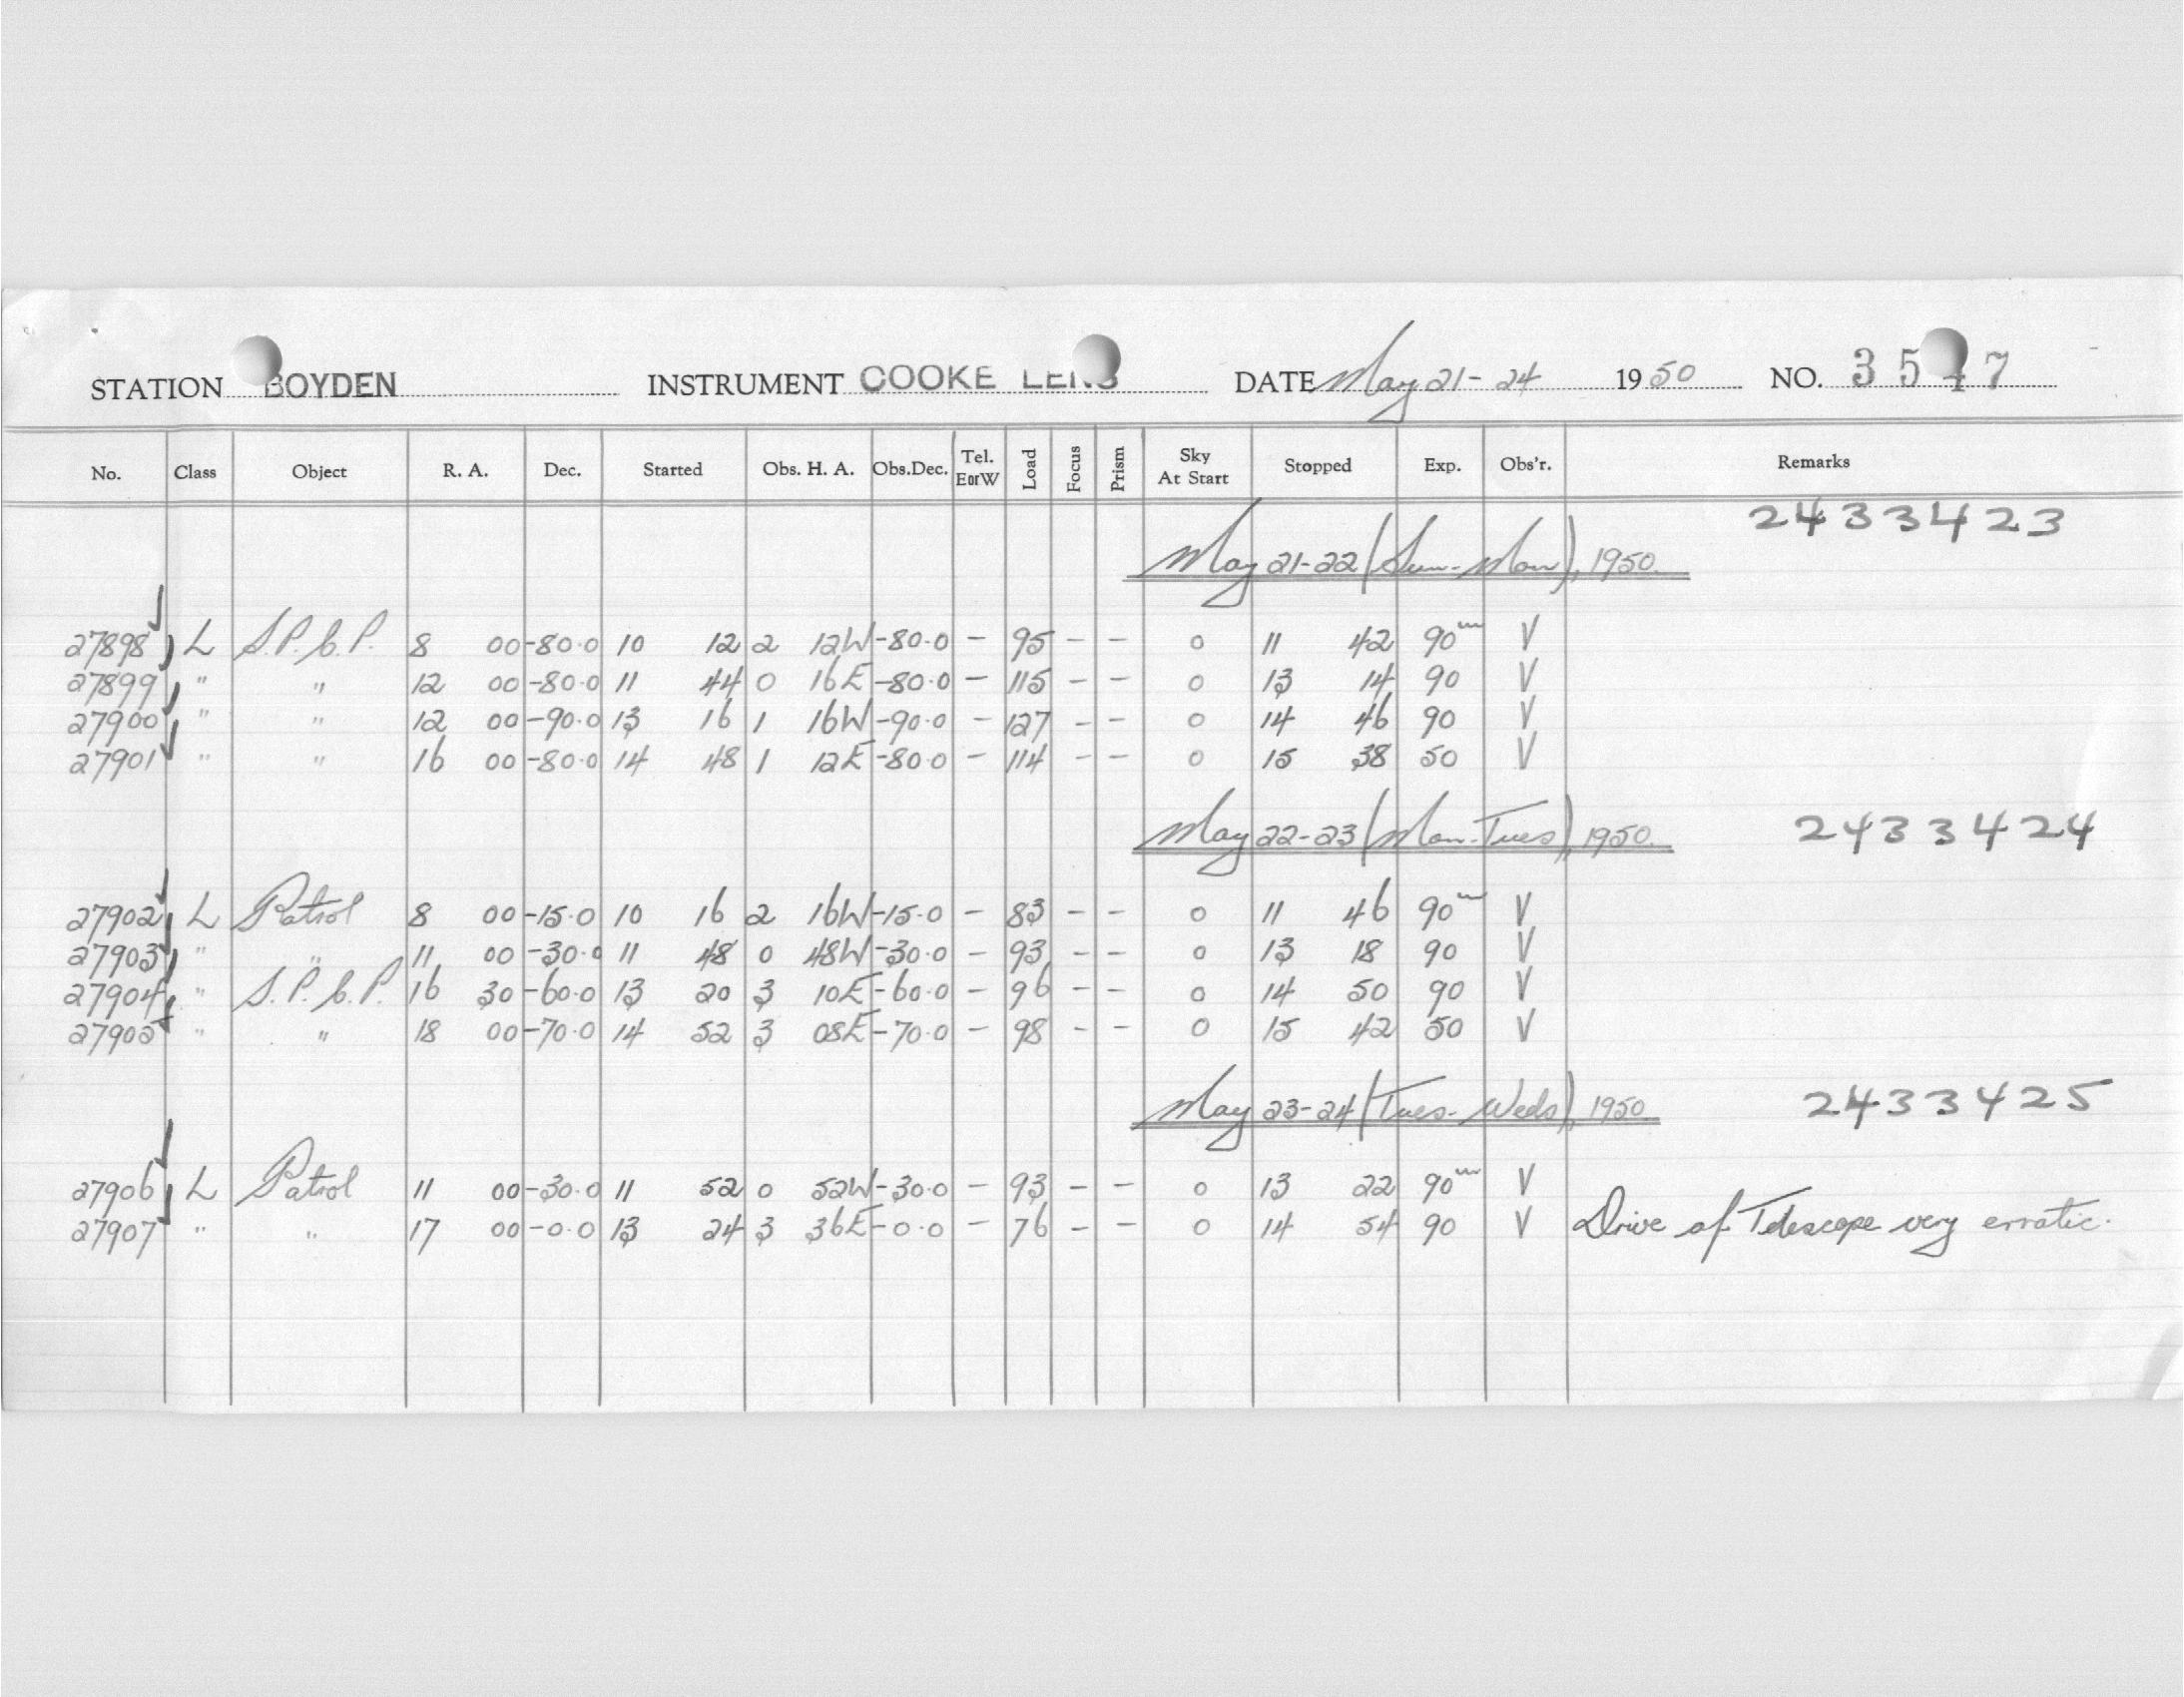 STATION BOYDEN INSTRUMENT COOKE LENS DATE May 21-24 1950 NO. 3547
No. Class Object R. A. Dec. Started Obs. H. A. Obs.Dec. Tel. EorW Load Focus Prism Sky At Start Stopped Exp. Obs'r. Remarks
2433423
May 21-22 (Sun-Mon), 1950.
27898 L S.P.C.P. 8 00 -80.0 10 12 2 12W -80.0 - 95 - - 0 11 42 90m V
27899 " " 12 00 -80.0 11 44 0 16E -80.0 - 115 - - 0 13 14 90 V
27900 " " 12 00 -90.0 13 16 1 16W -90.0 - 127 - - 0 14 46 90 V
27901 " " 16 00 -80.0 14 48 1 12E -80.0 - 114 - - 0 15 38 50 V
May 22-23 (Mon-Tues), 1950. 2433424
27902 L Patrol 8 00 -15.0 10 16 2 16W -15.0 - 83 - - 0 11 46 90m V
27903 " " 11 00 -30.0 11 48 0 48W -30.0 - 93 - - 0 13 18 90 V
27904 " S.P.C.P. 16 30 -60.0 13 20 3 10E -60.0 - 96 - - 0 14 50 90 V
27905 " " 18 00 -70.0 14 52 3 08E -70.0 - 98 - - 0 15 42 50 V
May 23-24 (Tues-Weds), 1950 2433425
27906 L Patrol 11 00 -30.0 11 52 0 52W -30.0 - 93 - - 0 13 22 90m V
27907 " " 17 00 -0.0 13 24 3 36E -0.0 - 76 - - 0 14 54 90 V Drive of Telescope very erratic.